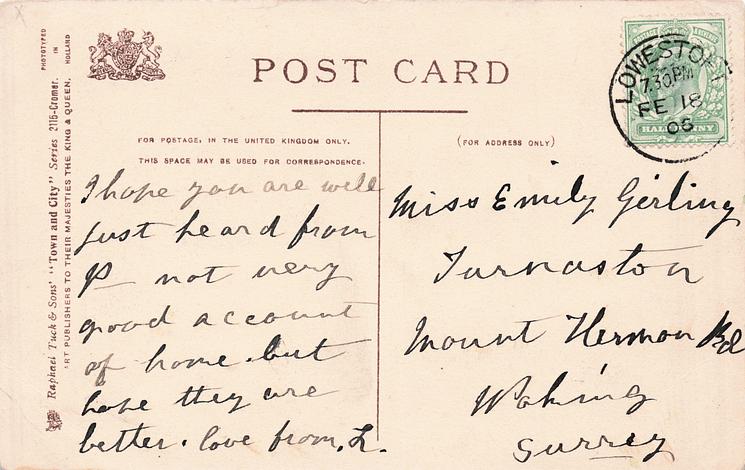 PHOTOTYPED
IN
HOLLAND
Raphael Tuck & Sons' "Town and City" Series 2115-Cromer.
ART PUBLISHERS TO THEIR MAJESTIES THE KING & QUEEN.
POST CARD
FOR POSTAGE, IN THE UNITED KINGDOM ONLY,
THIS SPACE MAY BE USED FOR CORRESPONDENCE.
(FOR ADDRESS ONLY)
LOWESTOFT
7.30PM
FE 18
HALFPENNY
I hope you are well
just heard from
P— not very
good account
of home. but
hope they are
better. love from, L.
Miss Emily Girling
Turnaston
Mount Hermon Rd
Woking
Surrey